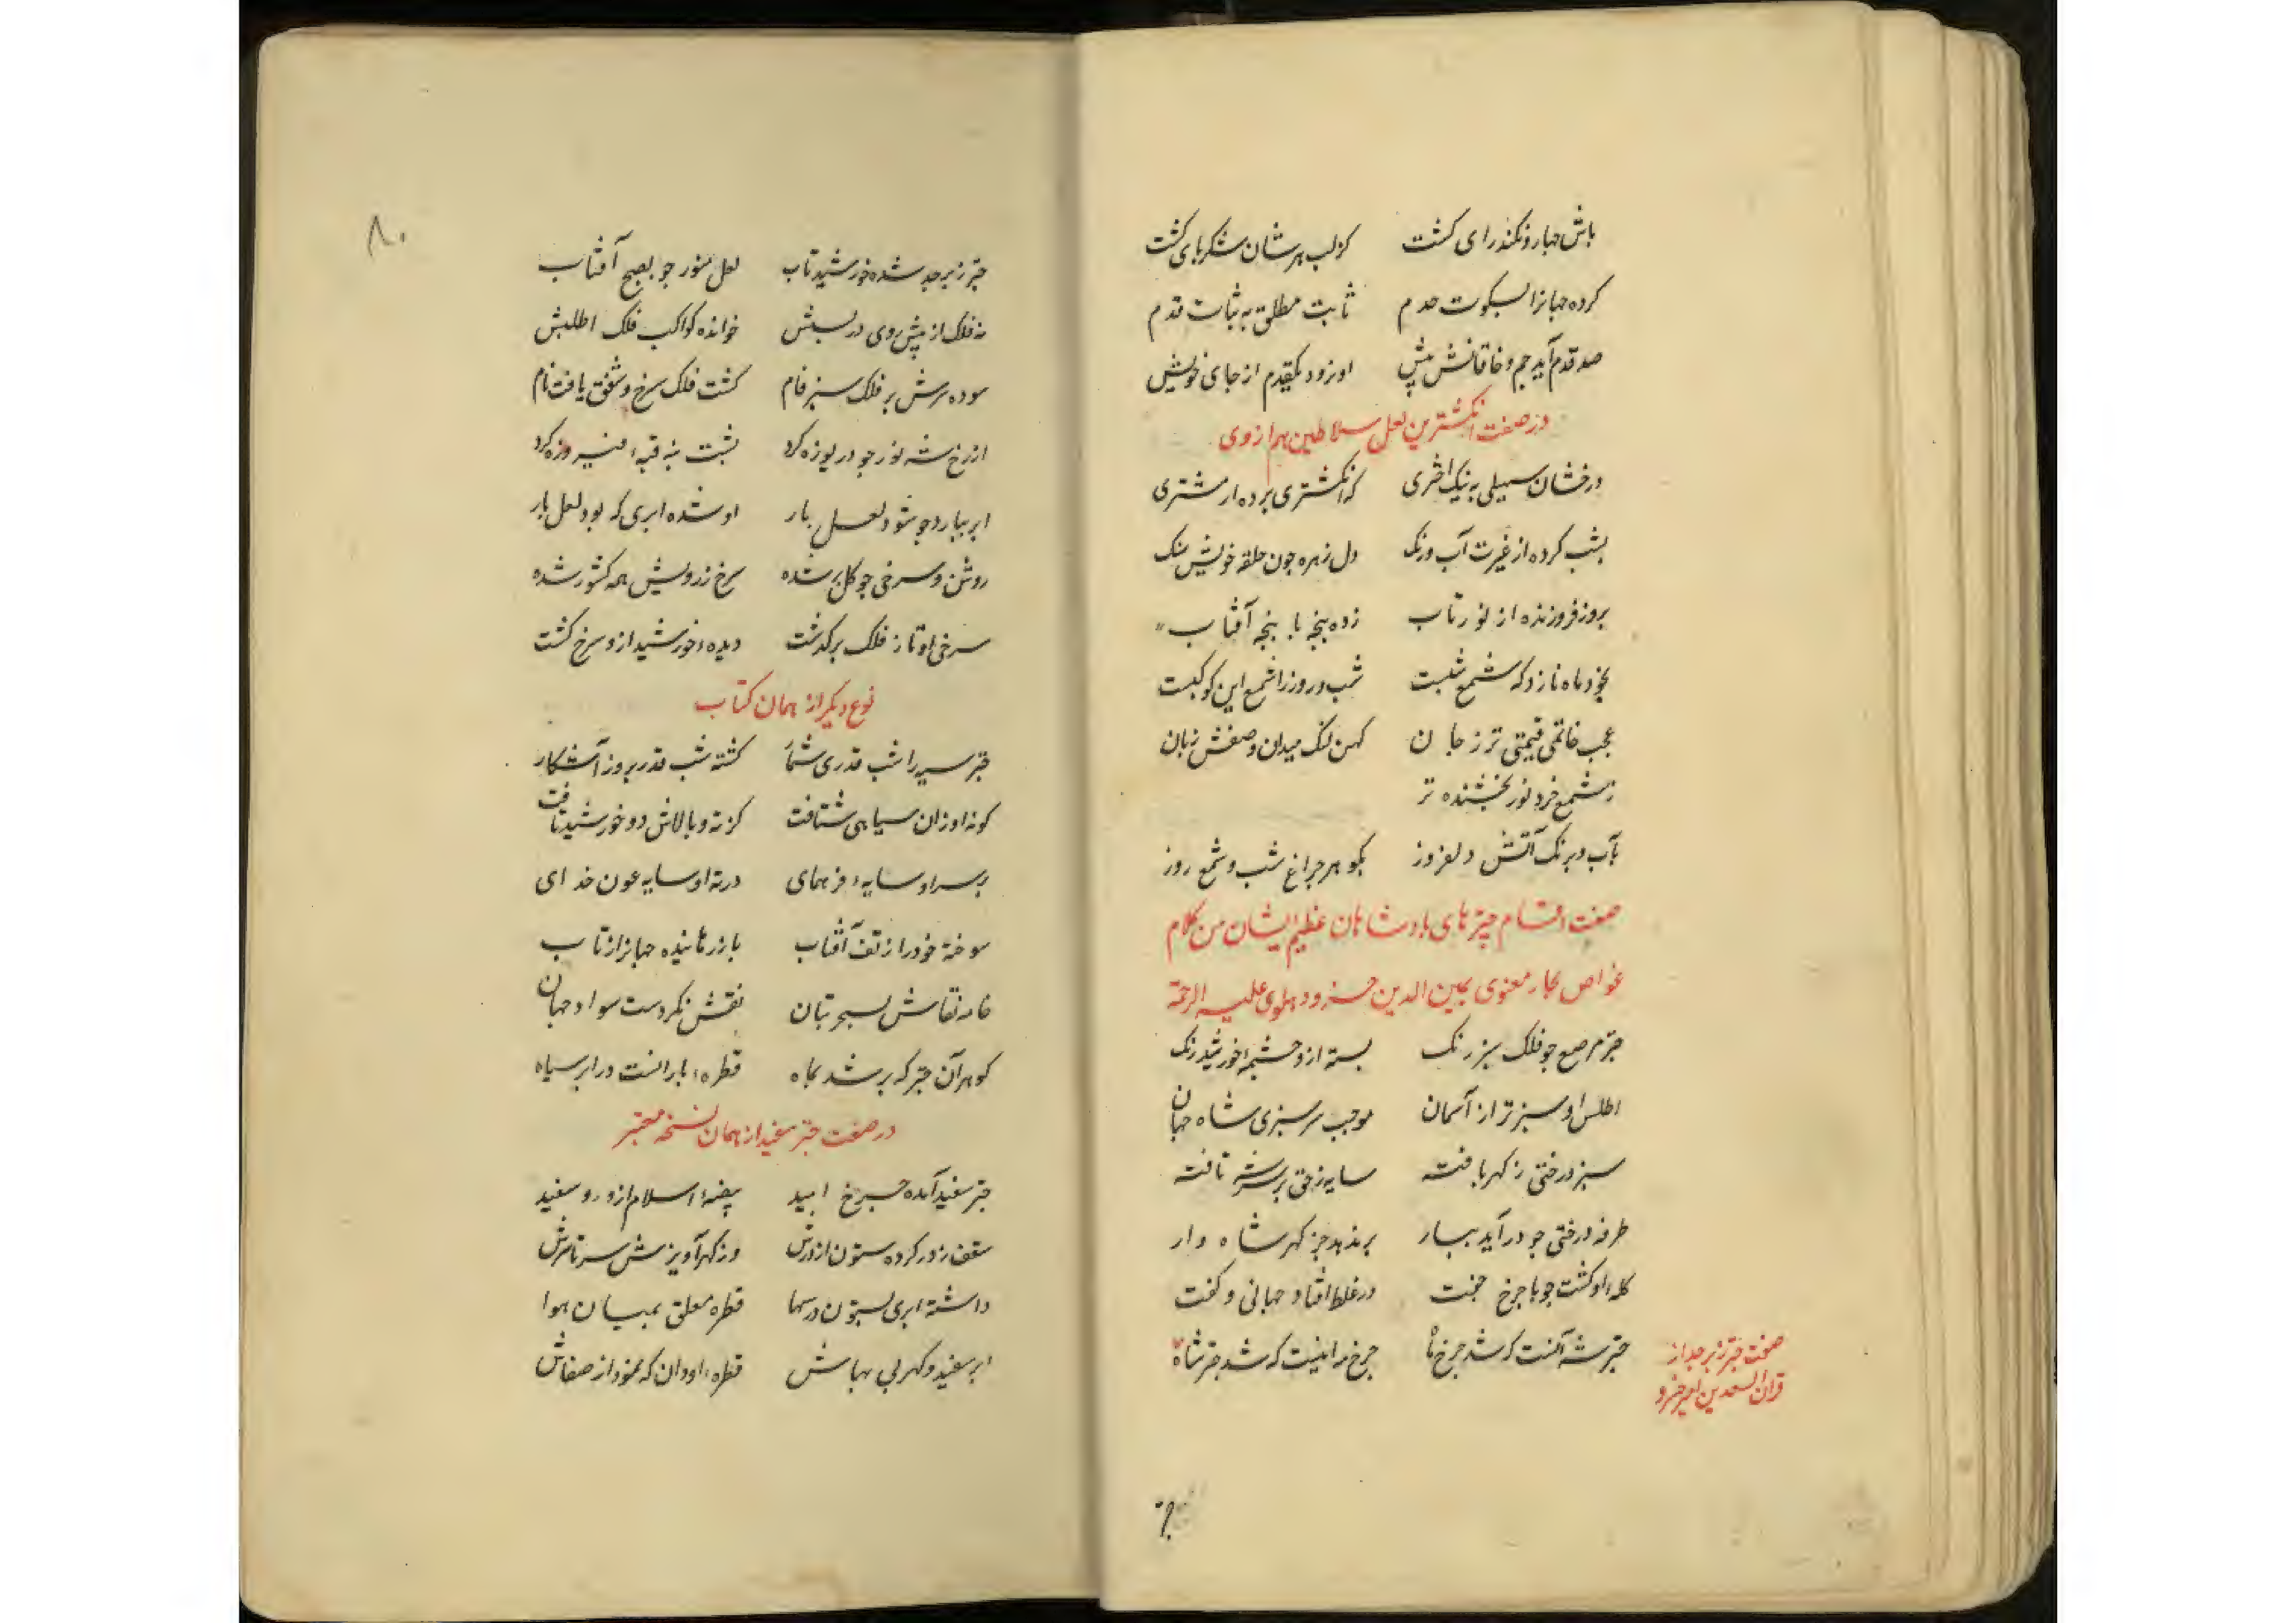 کرده جهانرا بسکوت حرم ثابت مطلق به ثبات قدم
صد قدم آید جم و خاقانش پیش او نرود یکقدم از جای خویش
در صفت انگشترین لعل سلاطین هم از وی
درخشان سهیلی به نیک اختری که انگشتری برده از مشتری
بشب کرده از غیرت آب ورنک دل زهره چون حلقه خویش تنک
بروز فروزنده از نور تاب زده پنجه با پنجه آفتاب
بخود ماه نازد که شمع شبست شب و روز را شمع این کوکبست
عجب خاتمی قیمتی تر ز جان کهن لنک میدان وصفش زبان
ز شمع خرد نور بخشنده تر
بآب و برنک آتش دلفروز بگوهر چراغ شب و شمع روز
صفت اقسام چترهای پادشاهان عظیم الشان من کلام
غواص بحار معنوی یمین الدین خسرو دهلوی علیه الرحمة
چتر مرصع چو فلک سبز رنک بسته ازو چشمهٔ خورشید رنک
اطلس او سبزتر از آسمان موجب سرسبزی شاه جهان
سبز درختی ز کهر بافته سایه زحق بر سر شه تافته
طرفه درختی چو درآید ببار بر ندهد جز کهر شاه وار
کله او کشت چو با چرخ جفت در غلط افتاد جهانی و کفت
چتر شه آنست که شد چرخ ما چرخ مه اینست که شد چتر شاه
صفت چتر زبرجد از
قران السعدین امیر خسرو
۸۰
چتر زبرجد شده خورشید تاب لعل منور چو بصبح آفتاب
نه فلک از پیش روی در پسش خوانده کواکب فلک اطلسش
سوده سرش بر فلک سبز فام کشت فلک سرخ و شفق یافت نام
از رخ شه نور چو دریوزه کرد پشت به قبهٔ فیروزه کرد
ابر ببارد چو شود لعل بار او شده ابری که بود لعل بار
روشن و سرخی چو کل تر شده سرخ ز رویش همه کشور شده
سرخی او تا ز فلک برگذشت دیدهٔ خورشید ازو سرخ کشت
نوع دیکر از همان کتاب
چتر سیه را شب قدری شمار کشته شب قدر بروز آشکار
کونه او زان سیاهی شتافت کز ته و بالاش دو خورشید تافت
بر سر او سایهٔ فر همای در ته او سایه عون خدای
سوخته خود را ز تف آفتاب باز رهانیده جهانرا ز تاب
خامه نقاش بسحر بنان نقش نکردست سواد جهان
کوهر آن چتر که بر شد بماه قطرهٔ بارانست در ابر سیاه
در صفت چتر سفید از همان نسخه معتبر
چتر سفید آمده چرخ امید بیضهٔ اسلام ازو رو سفید
سقف زدر کرده ستون از زرش وز کهر آویزش سر تا سرش
داشته ابری بستون در سما قطره معلق بمیان هوا
ابر سفید و کهر بی بهاش قطرهٔ او دان که نمود از صفاش